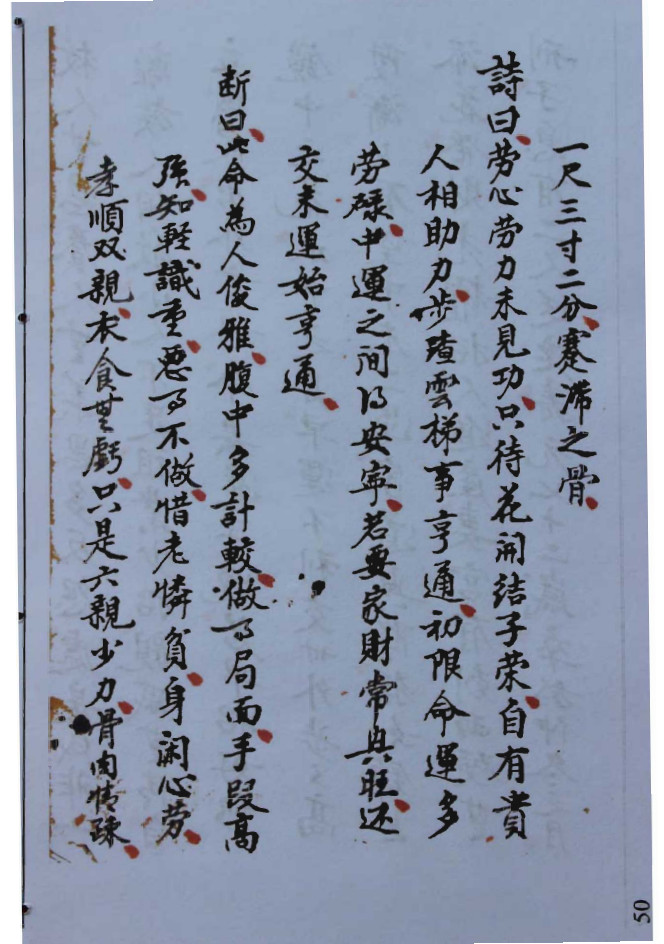 一尺三寸二分蹇滯之骨
詩曰劳心劳力未見功只待花開结子荣自有貴
人相助力步踏雲梯事亨通初限命運多
劳碌中運之间得安宁若要家財常興旺还
交末運始亨通
断曰此命為人俊雅腹中多計較做事局面手段高
强知軽識重恶事不做惜老憐貧身闲心劳
孝順双親衣食無虧只是六親少力骨肉情疎
50